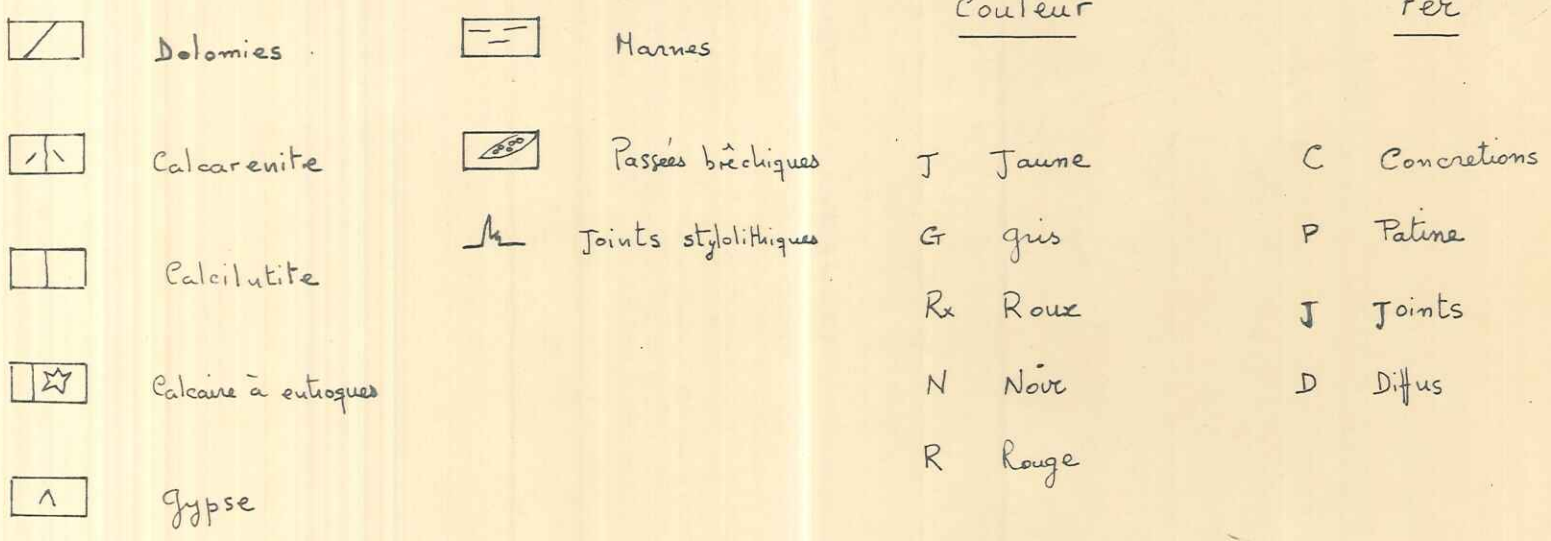 Dolomies
Calcarenite
Calcilutite
Calcaire à entroques
Gypse
Marnes
Passées brêchiques
Joints stylolithiques
Couleur
J Jaune
G gris
Rx Roux
N Noir
R Rouge
Fer
C Concretions
P Patine
J Joints
D Diffus